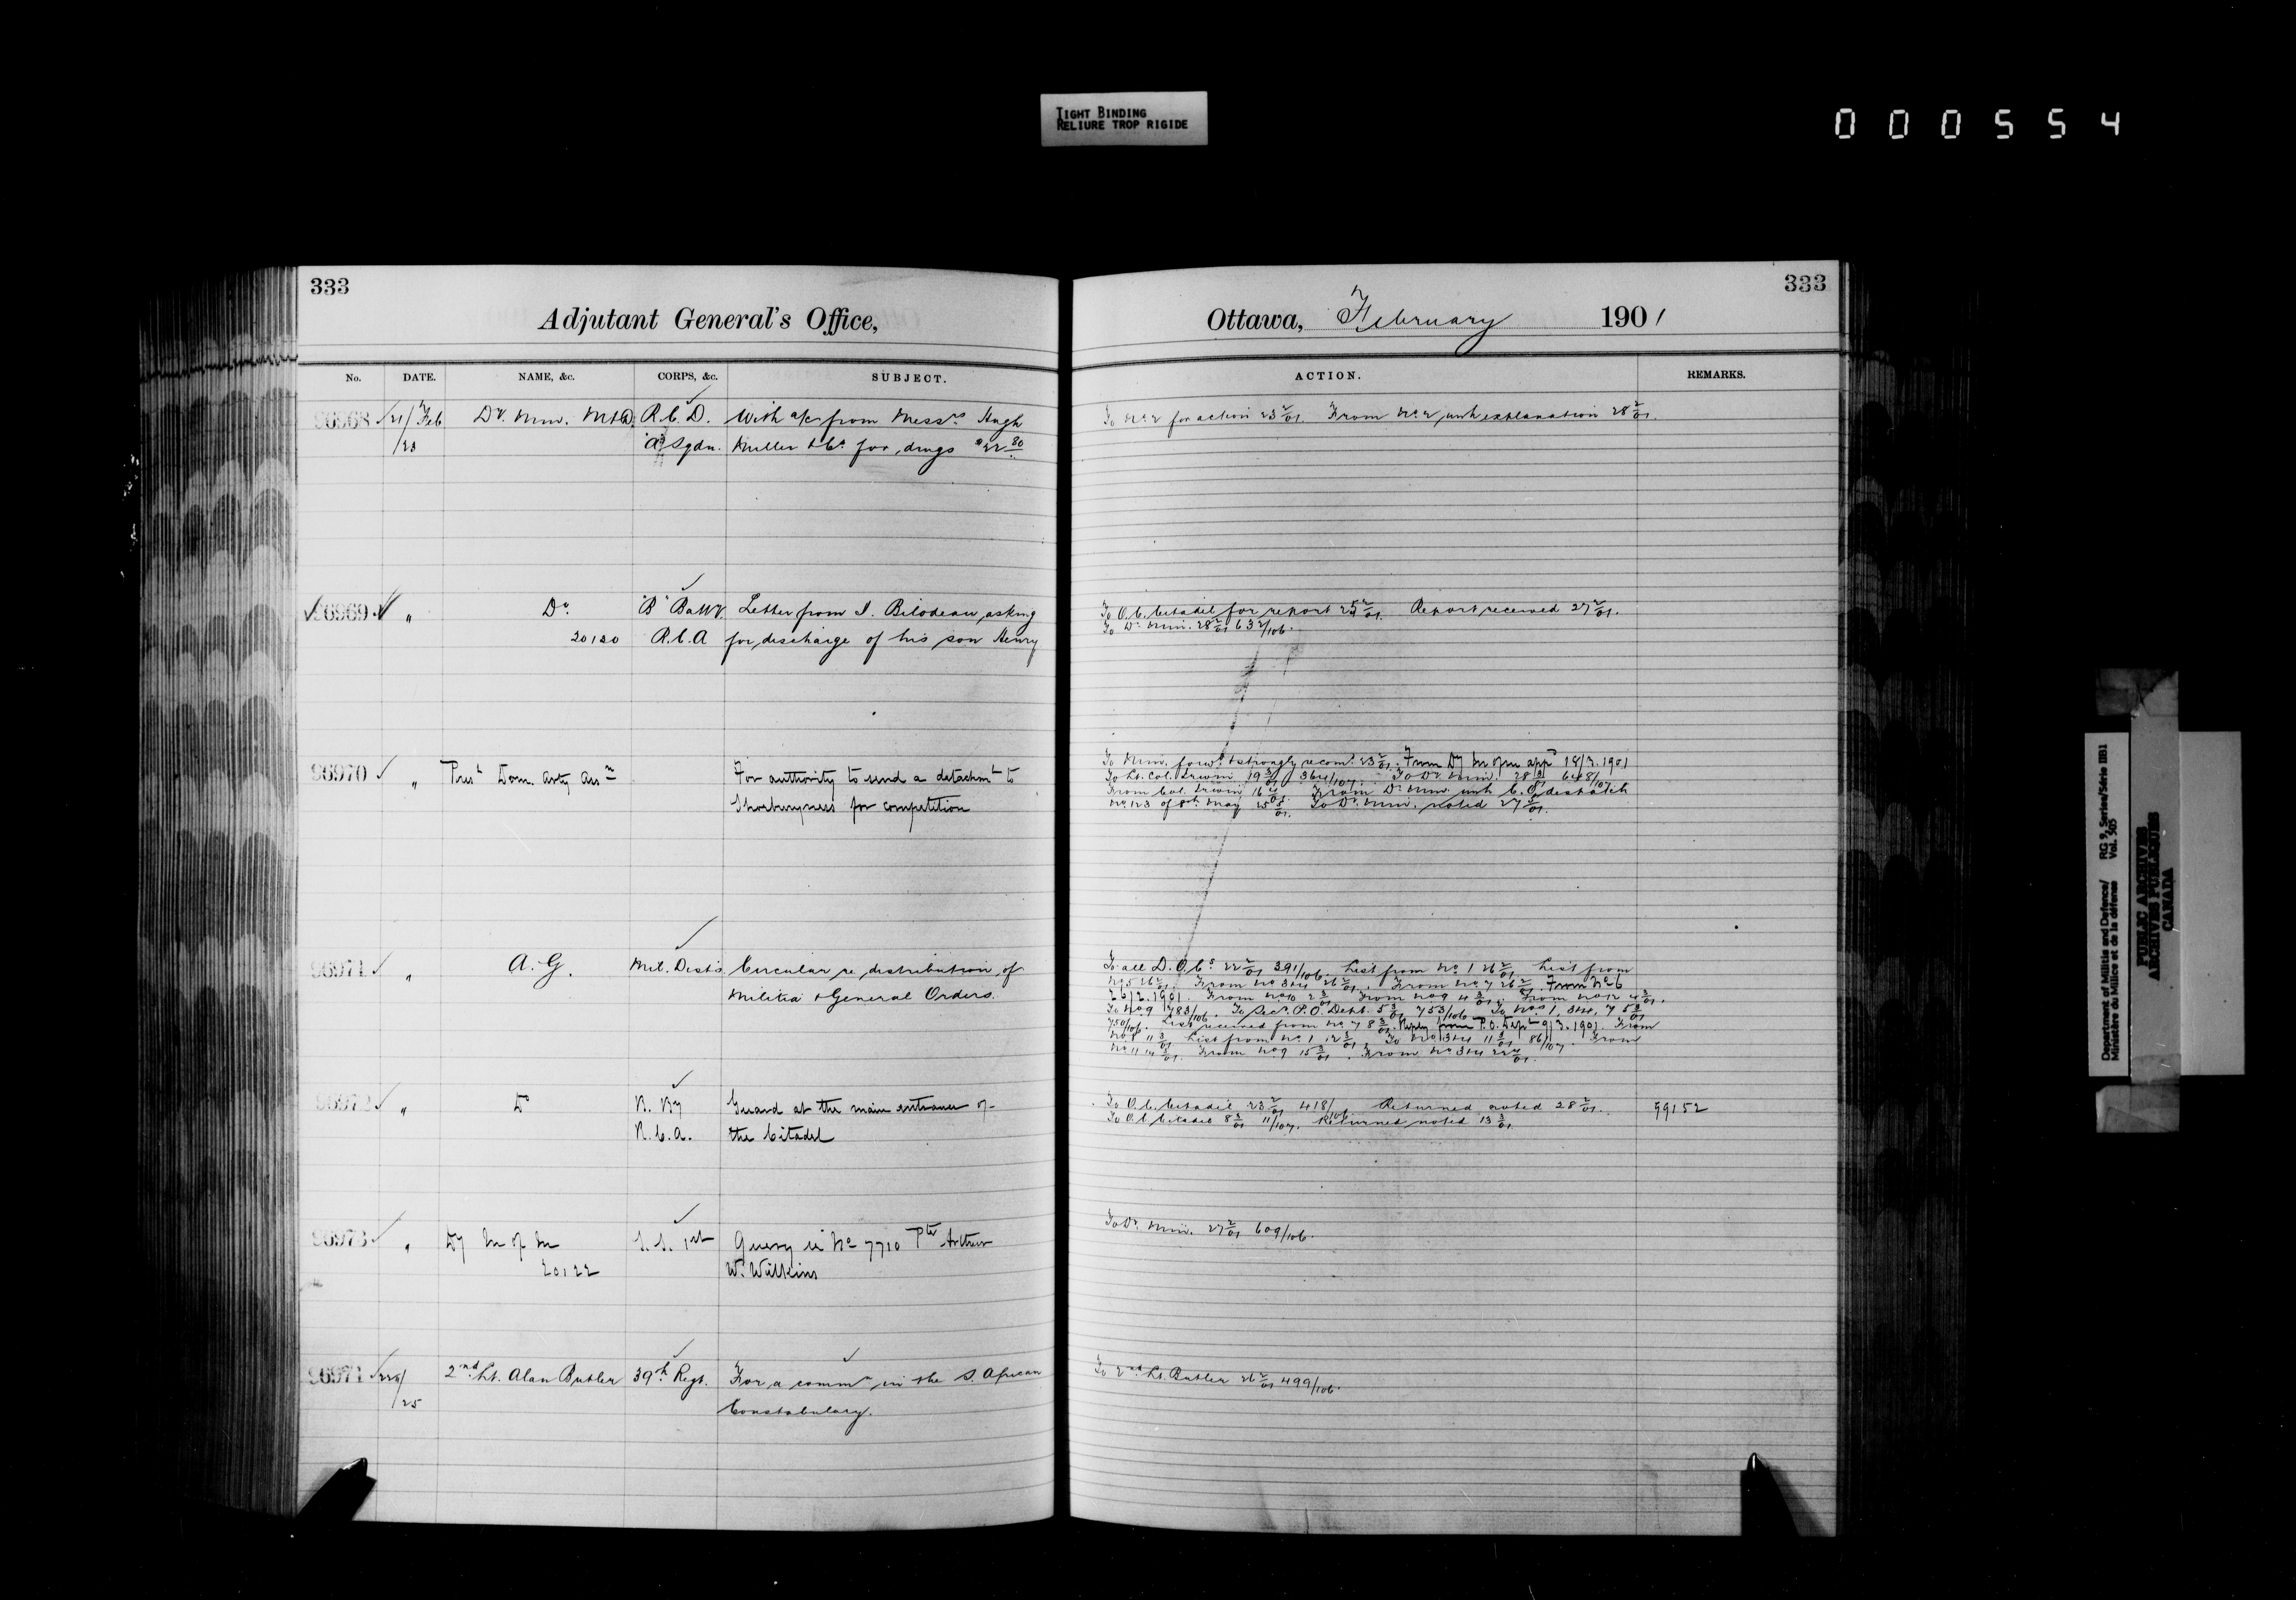 TIGHT BINDING
RELIURE TROP RIGIDE
000554
333
Adjutant General's Office,
No. DATE. NAME, &c. CORPS, &c. SUBJECT.
96968 21/Feb Dy. Min. M&D R.C.D. With a/c from Messrs Hugh
/23 "A" Sqdn. Miller & Co. for drugs $22.80
96969 " Do. "B" Batty. Letter from J. Bilodeau, asking
20120 R.C.A for discharge of his son Henry
96970 " Prest Dom. Arty Assn For authority to send a detachmt to
Shoeburyness for competition
96971 " A.G. Mil. Dists. Circular re distribution of
Militia & General Orders.
96972 " Do B. By Guard at the main entrance of
R.C.A. the Citadel
96973 " Dy M of M S.S. 1st Query re No 7710 Pte Arthur
20122 W. Watkins
96974 22/ 2nd Lt. Alan Butler 39th Regt. For a commn in the S. African
/25 Constabulary.
333
Ottawa, February 1901
ACTION. REMARKS.
To No. 2 for action 23 2/01. From No. 2 with explanation 28 2/01.
To O.C. Citadel for report 25 2/01. Report received 27 2/01.
To Dy. Min. 28 2/01 632/106.
To Min. forwd. & strongly recomd. 23 2/01. From Dy M of M appd 18/3.1901
To Lt. Col. Irwin 19 3/01 364/107. To Dy. Min. 28 3/01 648/107
From Col. Irwin 16 From Dy. Min. with C.O. despatch
No. 123 of 8th May 25 5/01. To Dy. Min. noted 27 5/01.
To all D.O.Cs 22 2/01 391/106. List from No. 1 26 2/01. List from
No. 5 26 2/01. From No. 3&4 26 2/01. From No. 7 26 2/01. From No 6
26/2.1901. From No 10 2 3/01. From No 9 4 3/01. From No 12 4 3/01.
To No 9 783/106. To Secy. P.O. Dept. 5 3/01 753/106. To Nos 1, 3&4, 7 5 3/01
750/106. List received from No. 7 8 3/01. Reply from P.O. Dept 9/3.1901. From
No. 8 11 3/01 List from No. 1 12 3/01. To No 3&4 11 3/01 86/107. From
No. 11 14 3/01. From No 9 15 3/01. From No 3&4 22 4/01.
To O.C. Citadel 23 2/01 418/106. Returned noted 28 2/01. 99152
To O.C. Citadel 8 3/01 11/107. Returned noted 13 3/01.
To Dy. Min. 27 2/01 609/106.
To 2nd Lt. Butler 26 2/01 499/106.
Department of Militia and Defence/ RG 9, Series/Série IIB1
Ministère du Milice et de la défense Vol. 505
PUBLIC ARCHIVES
ARCHIVES PUBLIQUES
CANADA